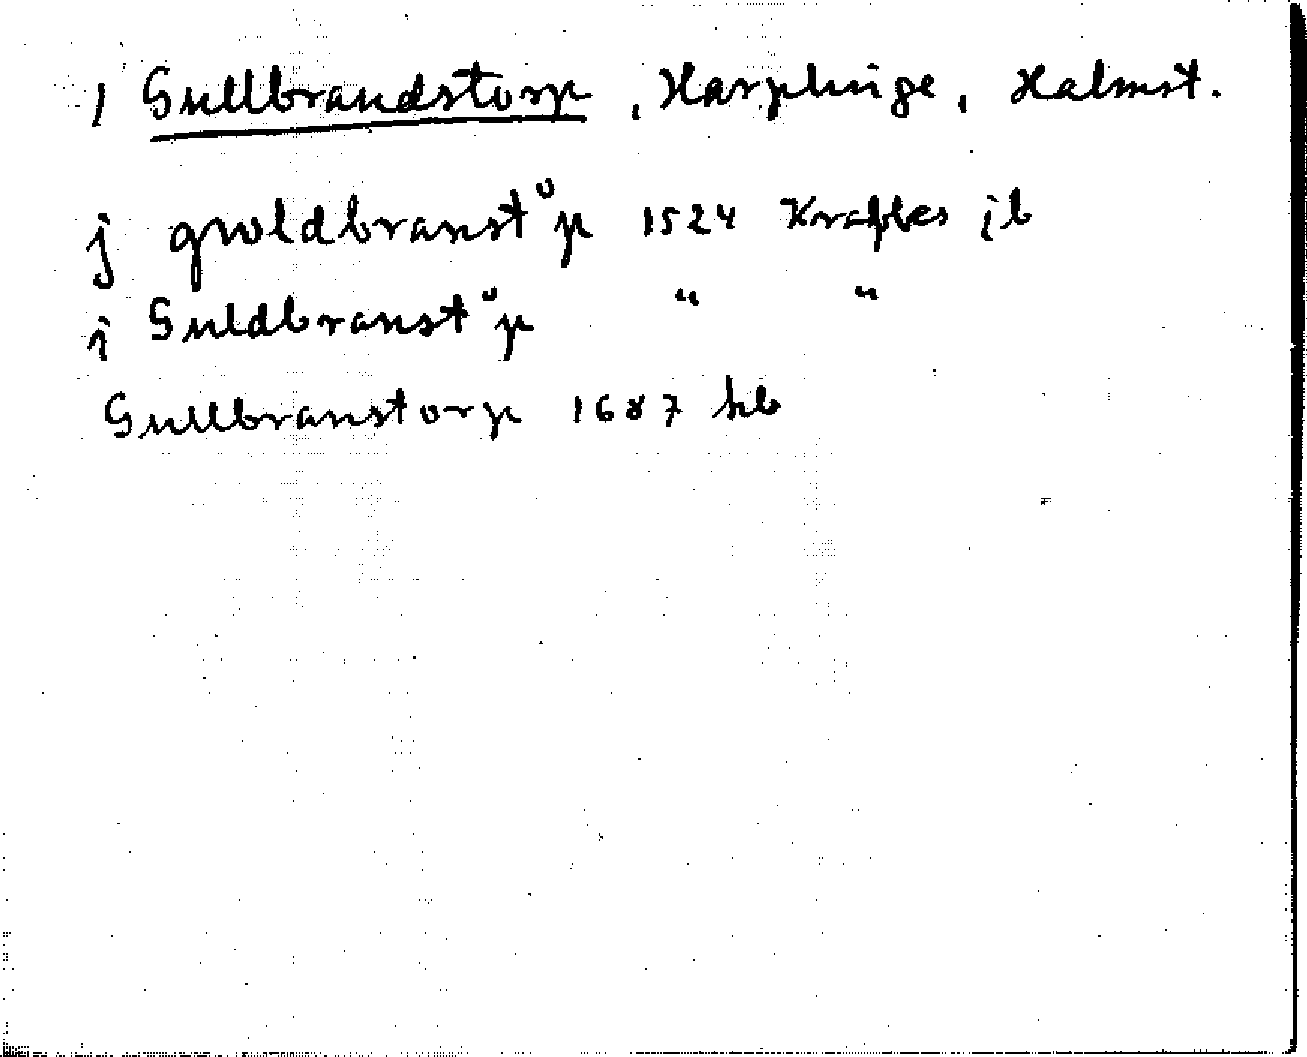 1 Gullbrandstorp, Harplinge, Halmst.
j gwldbranstᵘp 1524 Krabbes jb
i Guldbranstᵘp " "
Gullbranstorp 1687 hb